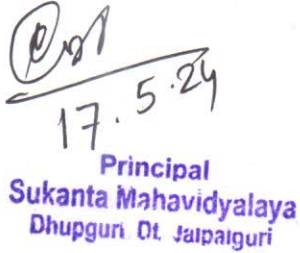 17.5.24
Principal
Sukanta Mahavidyalaya
Dhupguri Dt. Jalpaiguri